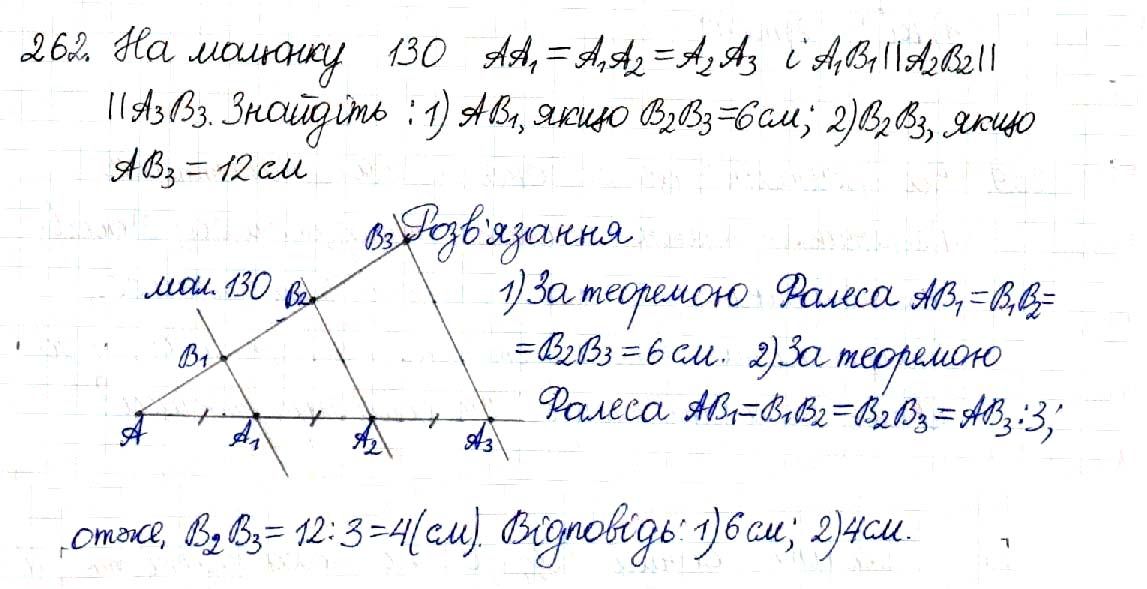 262. На малюнку 130 AA₁ = A₁A₂ = A₂A₃ і A₁B₁ || A₂B₂ ||
|| A₃B₃. Знайдіть : 1) AB₁, якщо B₂B₃ = 6 см; 2) B₂B₃, якщо
AB₃ = 12 см
B₃ Розв'язання
мал. 130 B₂ 1) За теоремою Фалеса AB₁ = B₁B₂ =
B₁ = B₂B₃ = 6 см. 2) За теоремою
Фалеса AB₁ = B₁B₂ = B₂B₃ = AB₃ : 3;
A A₁ A₂ A₃
отже, B₂B₃ = 12 : 3 = 4 (см). Відповідь: 1) 6 см; 2) 4 см.